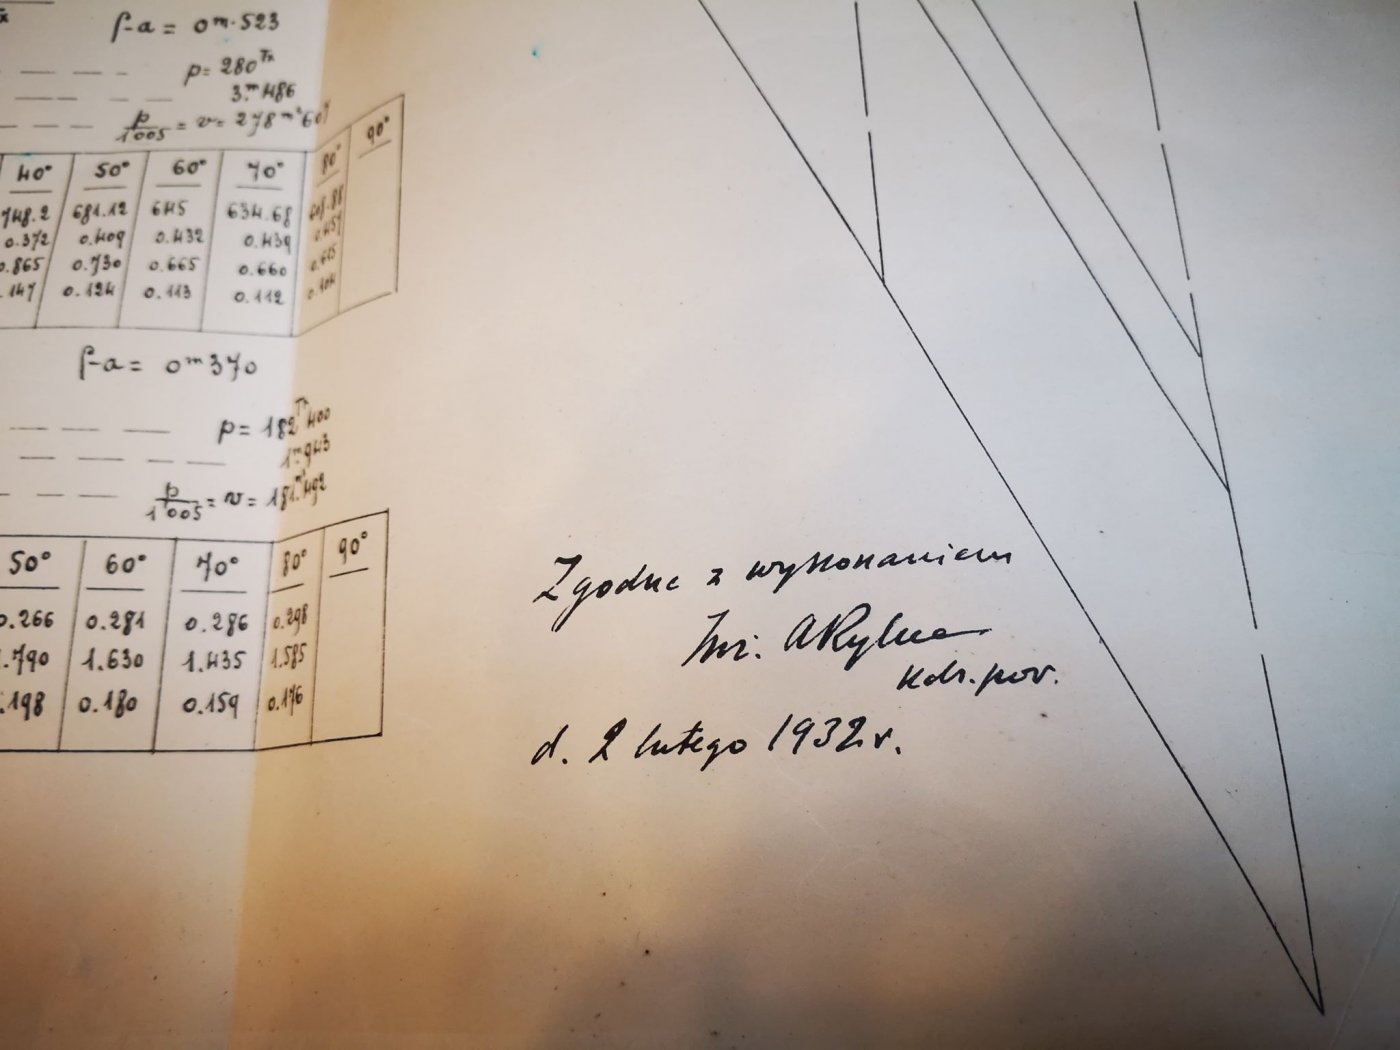 ρ-a = 0ᵐ·523
p = 280ᵀˣ
3.ᵐ486
p/1ᵀ005 = v = 278ᵐ³607
40° 50° 60° 70° 80° 90°
748.2 681.12 645 634.68
0.372 0.409 0.432 0.439 0.457
0.865 0.730 0.665 0.660
.147 0.124 0.113 0.112 0.104
ρ-a = 0ᵐ370
p = 182ᵀˣ400
1ᵐ943
p/1ᵀ005 = v = 181.ᵐ³492
50° 60° 70° 80° 90°
0.266 0.281 0.286 0.298
.790 1.630 1.435 1.585
.198 0.180 0.159 0.176
Zgodne z wykonaniem
Inż. A Rylke
kdr. por.
d. 2 lutego 1932 r.